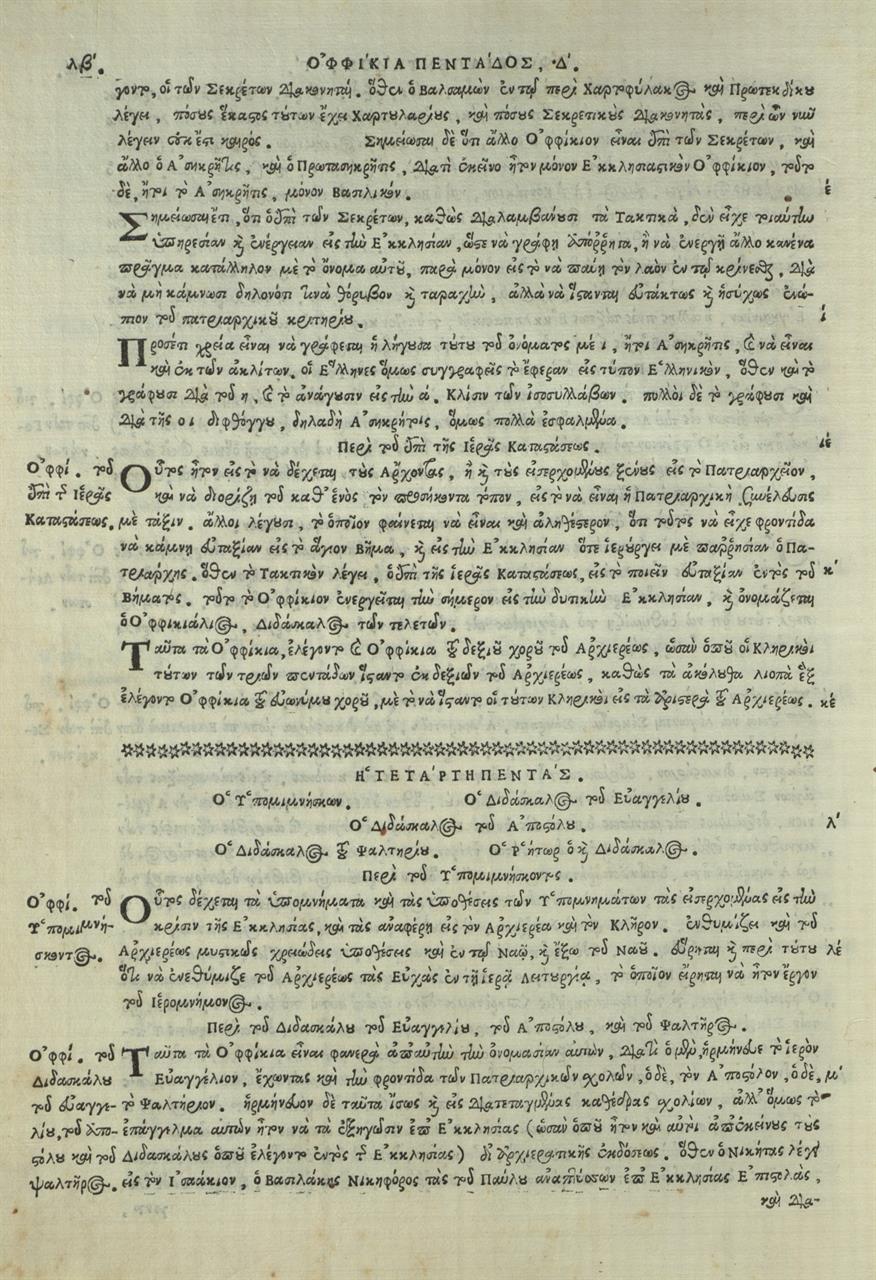 λβ΄. ΟΦΦΙΚΙΑ ΠΕΝΤΑΔΟΣ, Δ΄.
γοντο, οἱ τῶν Σεκρέτων Διακονηταί. ὅθεν ὁ Βαλσαμὼν ἐν τῷ περὶ Χαρτοφύλακος καὶ Πρωτεκδίκου
λέγει, πόσους ἕκαστος τούτων ἔχει Χαρτουλαρίους, καὶ πόσους Σεκρετικοὺς Διακονητὰς, περὶ ὧν νῦν
λέγειν οὐκ ἔστι καιρός. Σημείωσαι δὲ ὅτι ἄλλο Ὀφφίκιον εἶναι ὁ ἐπὶ τῶν Σεκρέτων, καὶ
ἄλλο ὁ Ἀσηκρῆτις, καὶ ὁ Πρωτασηκρῆτις, Διατὶ ἐκεῖνο ἦτον μόνον Ἐκκλησιαστικὸν Ὀφφίκιον, τοῦτο
δὲ, ἤτοι τὸ Ἀσηκρῆτις, μόνον Βασιλικόν. έ
Σημείωσαι ἔτι, ὅτι ὁ ἐπὶ τῶν Σεκρέτων, καθὼς Διαλαμβάνουσι τὰ Τακτικὰ, δὲν εἶχε τοιαύτην
ὑπηρεσίαν καὶ ἐνέργειαν εἰς τὴν Ἐκκλησίαν, ὥστε νὰ γράφῃ ἀπόρρητα, ἢ νὰ ἐνεργῇ ἄλλο κανένα
πρᾶγμα κατάλληλον μὲ τὸ ὄνομα αὐτοῦ, παρὰ μόνον εἰς τὸ νὰ παύῃ τὸν λαὸν ἐν τῷ κρίνεσθαι, Διὰ
νὰ μὴ κάμνωσι δηλονότι τινὰ θόρυβον καὶ ταραχὴν, ἀλλὰ νὰ ἵστανται εὐτάκτως καὶ ἡσύχως ἐνώ-
πιον τοῦ πατριαρχικοῦ κριτηρίου. ί
Προσέτι χρεία εἶναι νὰ γράφεται ἡ λήγουσα τούτου τοῦ ὀνόματος μὲ ι, ἤτοι Ἀσηκρῆτις, καὶ νὰ εἶναι
καὶ ἐκ τῶν ἀκλίτων. οἱ Ἕλληνες ὅμως συγγραφεῖς τὸ ἔφεραν εἰς τύπον Ἑλληνικὸν, ὅθεν καὶ τὸ
γράφουσι Διὰ τοῦ η, καὶ τὸ ἀνάγουσιν εἰς τὴν ά. Κλίσιν τῶν ἰσοσυλλάβων. πολλοὶ δὲ τὸ γράφουσι καὶ
Διὰ τῆς οι διφθόγγου, δηλαδὴ Ἀσηκρήτοις, ὅμως πολλὰ ἐσφαλμένα.
Περὶ τοῦ ἐπὶ τῆς Ἱερᾶς Καταστάσεως. ιέ
Ὀφφί. τοῦ
ἐπὶ τῆς Ἱερᾶς
Καταστάσεως.
Οὗτος ἦτον εἰς τὸ νὰ δέχεται τοὺς Ἄρχοντας, ἢ καὶ τοὺς εἰσερχομένους ξένους εἰς τὸ Πατριαρχεῖον,
καὶ νὰ διορίζῃ τοῦ καθ᾽ ἑνὸς τὸν προσήκοντα τόπον, εἰς τὸ νὰ εἶναι ἡ Πατριαρχικὴ Συνέλευσις
μὲ τάξιν. ἄλλοι λέγουσι, τὸ ὁποῖον φαίνεται νὰ εἶναι καὶ ἀληθέστερον, ὅτι τοῦτος νὰ εἶχε φροντίδα
νὰ κάμνῃ εὐταξίαν εἰς τὸ ἅγιον Βῆμα, καὶ εἰς τὴν Ἐκκλησίαν ὅτε ἱερούργει μὲ παρρησίαν ὁ Πα-
τριάρχης. ὅθεν τὸ Τακτικὸν λέγει, ὁ ἐπὶ τῆς ἱερᾶς Καταστάσεως, εἰς τὸ ποιεῖν εὐταξίαν ἐντὸς τοῦ κ΄
Βήματος. τοῦτο τὸ Ὀφφίκιον ἐνεργεῖται τὴν σήμερον εἰς τὴν δυτικὴν Ἐκκλησίαν, καὶ ὀνομάζεται
ὁ Ὀφφικιάλιος, Διδάσκαλος τῶν τελετῶν.
Ταῦτα τὰ Ὀφφίκια, ἐλέγοντο καὶ Ὀφφίκια τοῦ δεξιοῦ χοροῦ τοῦ Ἀρχιερέως, ὡσὰν ὁποῦ οἱ Κληρικοὶ
τούτων τῶν τριῶν πεντάδων ἵσταντο ἐκ δεξιῶν τοῦ Ἀρχιερέως, καθὼς τὰ ἀκόλουθα λοιπὰ ἓξ
ἐλέγοντο Ὀφφίκια τοῦ εὐωνύμου χοροῦ, μὲ τὸ νὰ ἵσταντο οἱ τούτων Κληρικοὶ εἰς τὰ ἀριστερὰ τοῦ Ἀρχιερέως. κέ
Ἡ ΤΕΤΑΡΤΗ ΠΕΝΤΑΣ.
Ὁ Ὑπομιμνήσκων. Ὁ Διδάσκαλος τοῦ Εὐαγγελίου.
Ὁ Διδάσκαλος τοῦ Ἀποστόλου. λ΄
Ὁ Διδάσκαλος τοῦ Ψαλτηρίου. Ὁ Ῥήτωρ ὁ καὶ Διδάσκαλος.
Περὶ τοῦ Ὑπομιμνήσκοντος.
Ὀφφί. τοῦ
Ὑπομιμνή-
σκοντος.
Οὗτος δέχεται τὰ ὑπομνήματα καὶ τὰς ὑποθέσεις τῶν Ὑπομνημάτων τὰς εἰσερχομένας εἰς τὴν
κρίσιν τῆς Ἐκκλησίας, καὶ τὰς ἀναφέρῃ εἰς τὸν Ἀρχιερέα καὶ τὸν Κλῆρον. ἐνθυμίζει καὶ τοῦ
Ἀρχιερέως μυστικῶς χρειώδεις ὑποθέσεις καὶ ἐν τῷ Ναῷ, καὶ ἔξω τοῦ Ναοῦ. εὕρηται καὶ περὶ τούτου λέ
ὅτι νὰ ἐνεθύμιζε τοῦ Ἀρχιερέως τὰς Εὐχὰς ἐν τῇ ἱερᾷ Λειτουργίᾳ, τὸ ὁποῖον εἴρηται νὰ ἦτον ἔργον
τοῦ Ἱερομνήμονος.
Περὶ τοῦ Διδασκάλου τοῦ Εὐαγγελίου, τοῦ Ἀποστόλου, καὶ τοῦ Ψαλτῆρος.
Ὀφφί. τοῦ
Διδασκάλου
τοῦ Εὐαγγε-
λίου, τοῦ Ἀπο-
στόλου καὶ τοῦ
Ψαλτῆρος.
Ταῦτα τὰ Ὀφφίκια εἶναι φανερὰ ἀπ᾽ αὐτὴν τὴν ὀνομασίαν αὐτῶν, Διατὶ ὁ μὲν, ἡρμήνευε τὸ ἱερὸν
Εὐαγγέλιον, ἔχωντας καὶ τὴν φροντίδα τῶν Πατριαρχικῶν σχολῶν, ὁ δὲ, τὸν Ἀπόστολον, ὁ δὲ, μ΄
τὸ Ψαλτήριον. ἡρμήνευον δὲ ταῦτα ἴσως καὶ εἰς Διατεταγμένας καθέδρας σχολίων, ἀλλ᾽ ὅμως τὸ
ἐπάγγελμα αὐτῶν ἦτον νὰ τὰ ἐξηγῶσιν ἐπ᾽ Ἐκκλησίας (ὡσὰν ὁποῦ ἦτον καὶ αὐτοὶ ἀπ᾽ ἐκείνους τοὺς
Διδασκάλους ὁποῦ ἐλέγοντο ἐντὸς τῆς Ἐκκλησίας) δι᾽ ἀρχιερατικῆς ἐκδόσεως. ὅθεν ὁ Νικήτας λέγει
εἰς τὸν Ἰσαάκιον, ὁ Βασιλάκης Νικηφόρος τὰς τοῦ Παύλου ἀναπτύσσων ἐπ᾽ Ἐκκλησίας Ἐπιστολὰς,
καὶ Δια-